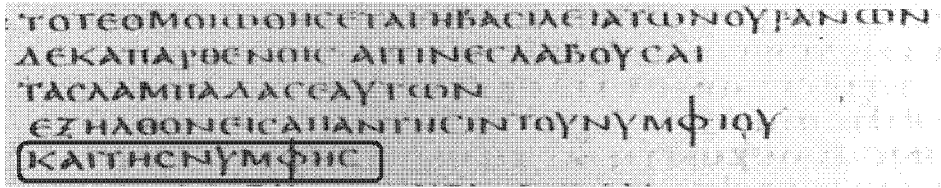 ΤΟΤΕΟΜΟΙΩΘΗϹΕΤΑΙΗΒΑϹΙΛΕΙΑΤΩΝΟΥΡΑΝΩΝ
ΔΕΚΑΠΑΡΘΕΝΟΙϹΑΙΤΙΝΕϹΛΑΒΟΥϹΑΙ
ΤΑϹΛΑΜΠΑΔΑϹΕΑΥΤΩΝ
ΕΞΗΛΘΟΝΕΙϹΑΠΑΝΤΗϹΙΝΤΟΥΝΥΜΦΙΟΥ
ΚΑΙΤΗϹΝΥΜΦΗϹ